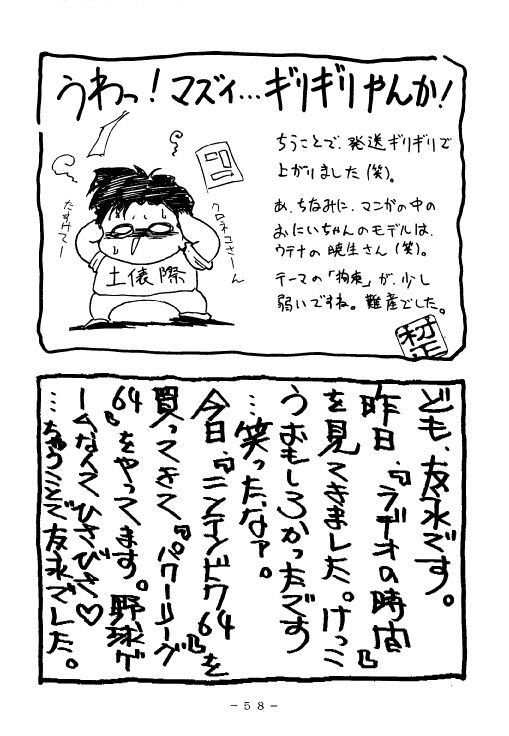 うわっ!マズイ…ギリギリやんか!
ちうことで、発送ギリギリで
上がりました(笑)。
あ、ちなみに、マンガの中の
おにいちゃんのモデルは、
ウテナの暁生さん(笑)。
テーマの「拘束」が、少し
弱いですね。難産でした。
クロネコさーん
たすけてー
土俵際
ども、友永です。
昨日、『ラヂオの時間』
を見てきました。けっこ
うおもしろかったです
…笑ったなァ。
今日、『ニンテンドウ64』を
買ってきて『パワーリーグ
64』をやってます。野球ゲ
ームなんてひさびさ♡
…ちゅうことで友永でした。
-58-